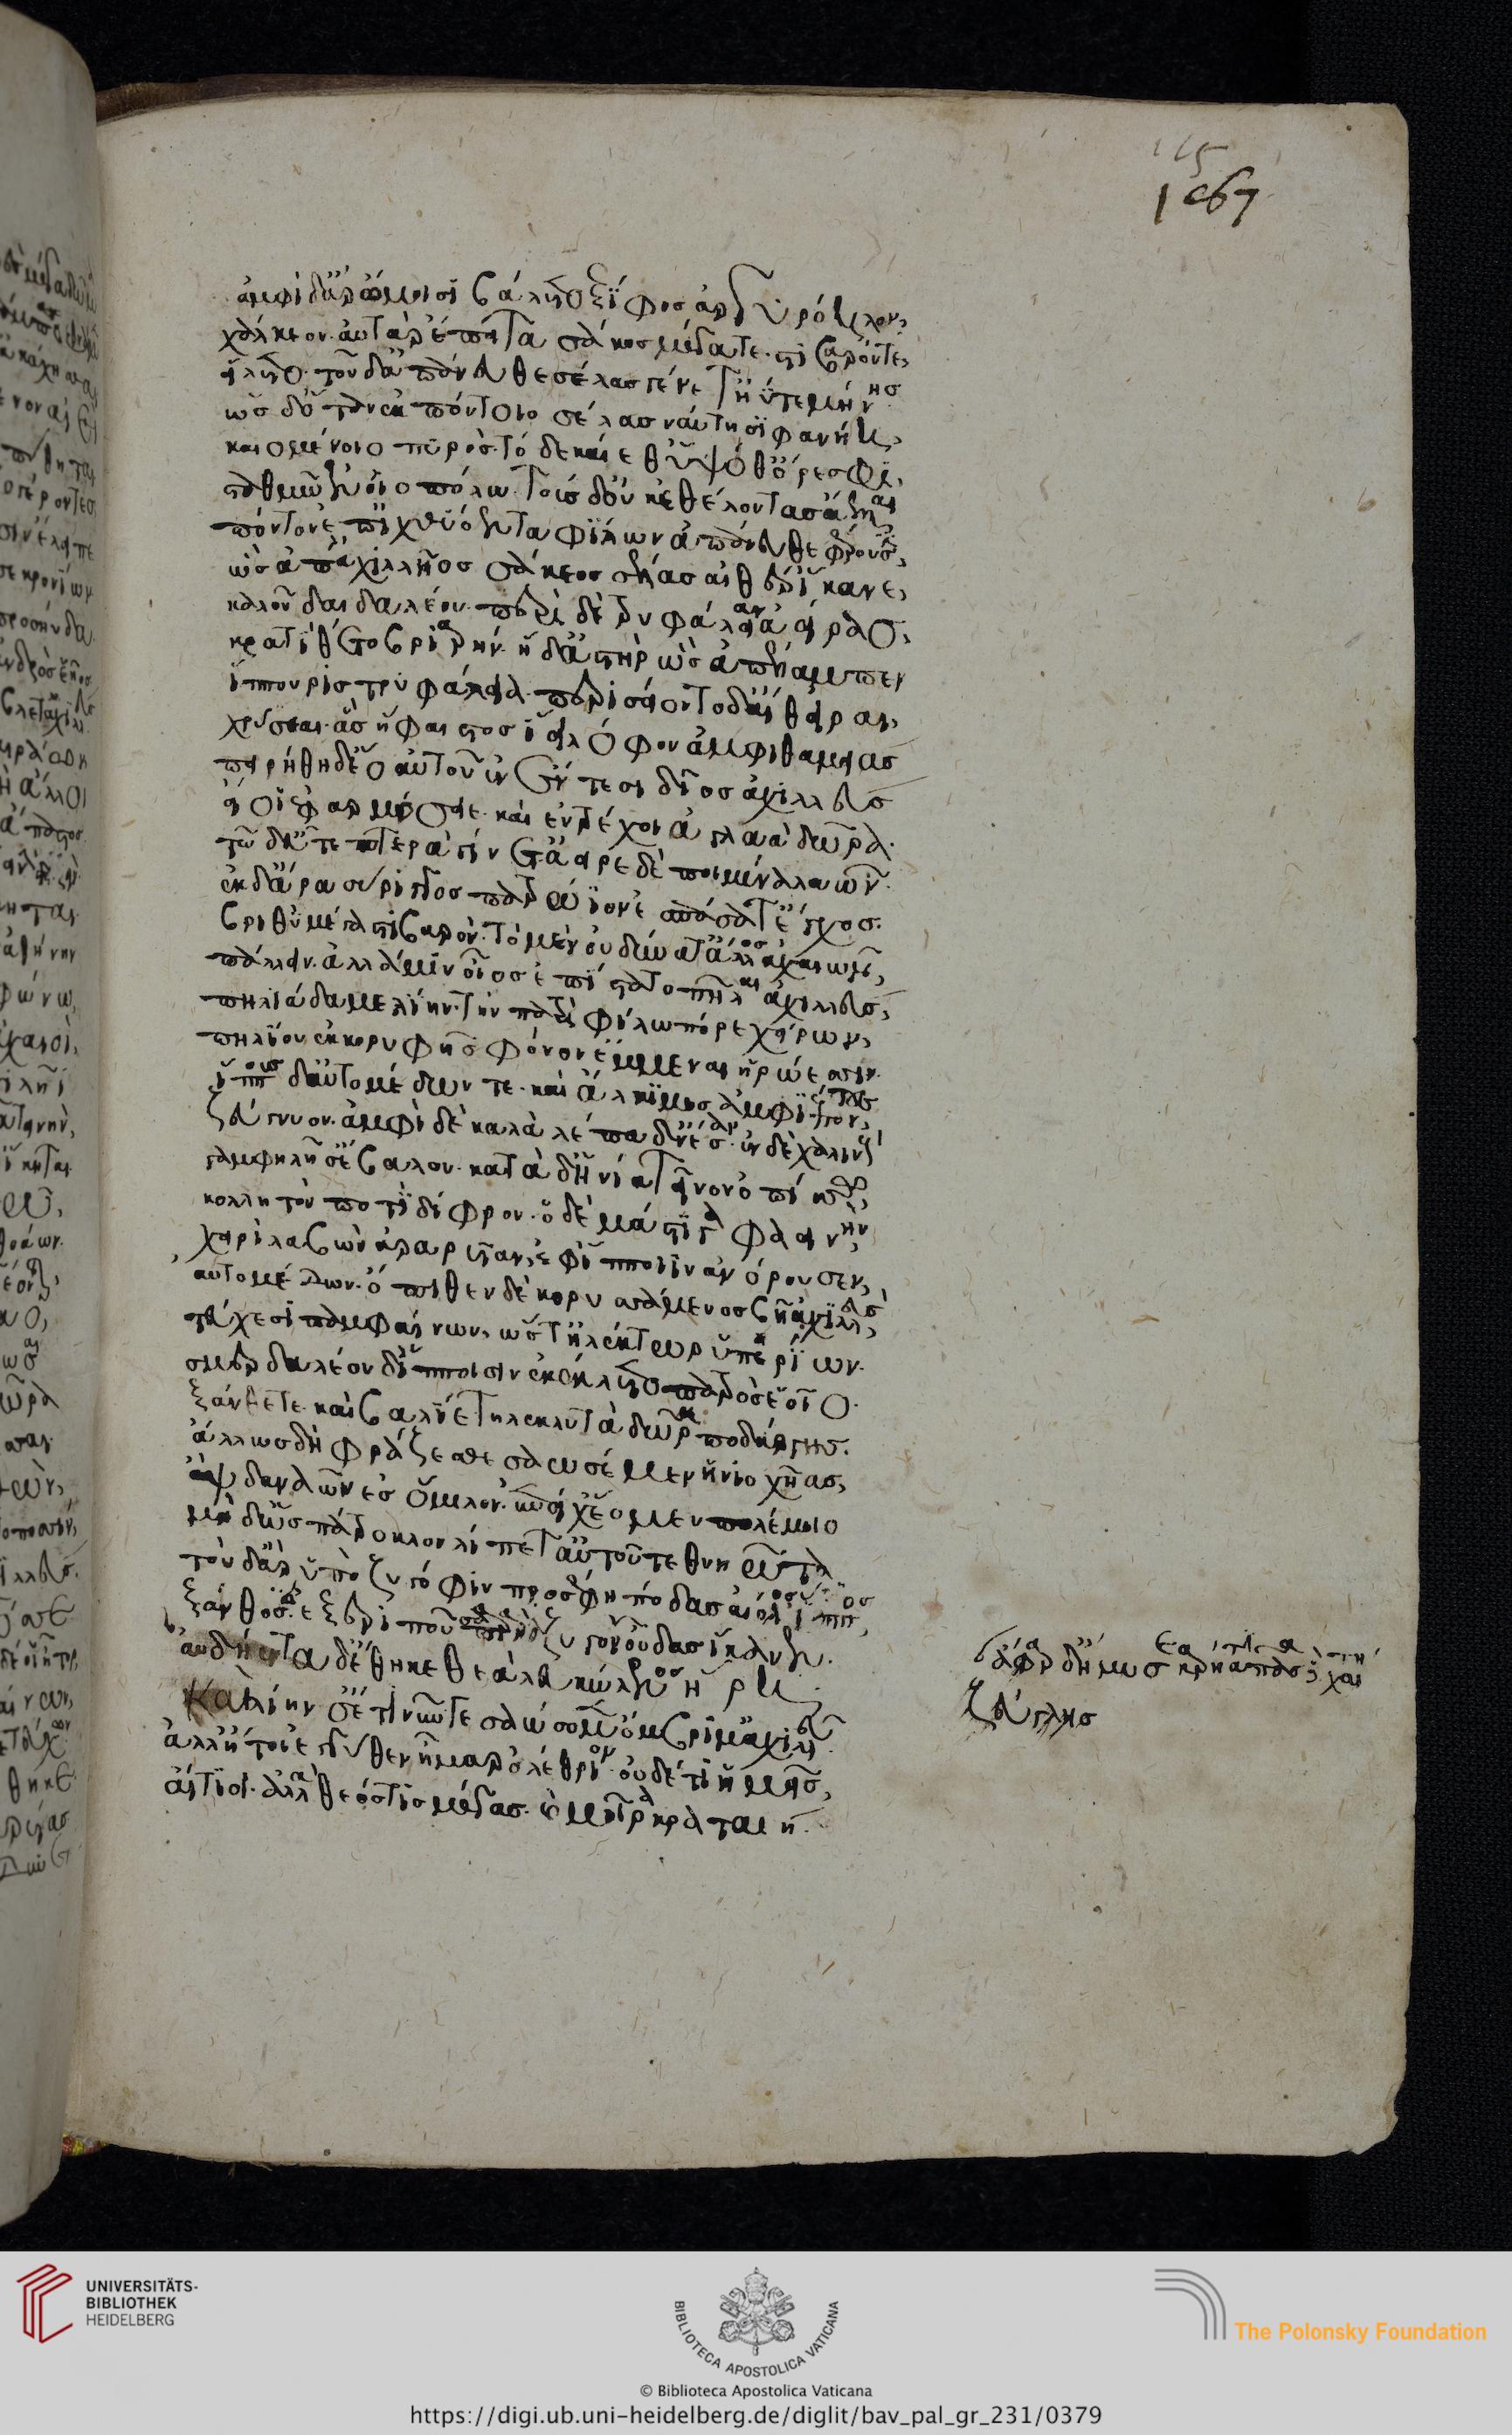 ἀμφὶ δ' ἄρ' ὤμοισι βάλετο ξίφος ἀργυρόηλον,
χάλκεον· αὐτὰρ ἔπειτα σάκος μέγα τε στιβαρόν τε,
εἵλετο· τοῦ δ' ἀπάνευθε σέλας γένετ' ἠΰτε μήνης
ὡς δ' ὅτ' ἂν ἐκ πόντοιο σέλας ναύτησι φανήη,
καιομένοιο πυρός· τό δε καίεθ' ὑψόθ' ὄρεσφι,
σταθμῶ ἐν οἰοπόλω· τοὺς δ' οὐκ ἐθέλοντας ἄελλαι
πόντον ἐπ' ἰχθυόεντα φίλων ἀπάνευθε φέρουσι,
ὣς ἀπ' ἀχιλλῆος σάκεος σέλας αἰθέρ' ἵκανε,
καλοῦ δαιδαλέου· περὶ δὲ τρυφάλειαν ἀείρας,
κρατὶ θέτο βριαρήν· ἡ δ' ἀστὴρ ὣς ἀπέλαμπεν
ἵππουρις τρυφάλεια· περισείοντο δ' ἔθειραι,
χρύσεαι· ἃς ἥφαιστος ἵει λόφον ἀμφὶ θαμειάς
πειρήθη δ' ἕο αὐτοῦ ἐν ἔντεσι δῖος ἀχιλλεύς
εἰ οἷ ἐφαρμόσειε· καὶ ἐντρέχοι ἀγλαὰ δῶρα·
τῶ δ' εὖτε πτερὰ γίνετ' ἄειρε δὲ ποιμένα λαῶν·
ἐκ δ' ἄρα σύριγγος πατρώϊον ἐσπάσατ' ἔγχος·
βριθὺ μέγα στιβαρόν· τὸ μὲν οὐ δύνατ' ἄλλος ἀχαιῶν,
πάλλειν· ἀλλά μιν οἶος ἐπίστατο πῆλαι ἀχιλλεύς,
πηλιάδα μελίην· τὴν πατρὶ φίλω πόρε χείρων,
πηλίου ἐκ κορυφῆς φόνον ἔμμεναι ἡρώεσσιν·
ἵππους δ' αὐτομέδων τε· καὶ ἄλκιμος ἀμφιέποντες
ζεύγνυον· ἀμφὶ δὲ καλὰ λέπαδν' ἕσαν· ἐν δὲ χαλινοὺς
γαμφηλῆς ἔβαλον· κατὰ δ' ἡνία τεῖνον ὀπίσσω,
κολλητὸν ποτὶ δίφρον· ὁ δὲ μάστιγα φαεινὴν,
χειρὶ λαβὼν ἀραρυῖαν, ἐφ' ἵπποιϊν ἀνόρουσεν,
αὐτομέδων· ὄπιθεν δὲ κορυσσάμενος βῆ ἀχιλλεὺς,
τεύχεσι παμφαίνων, ὥστ' ἠλέκτωρ ὑπερίων·
σμερδαλέον δ' ἵπποισιν ἐκέκλετο πατρὸς ἑοῖο·
ξάνθέ τε καὶ βαλίε τηλεκλυτὰ δῶρα ποδάργης·
ἄλλως δὴ φράζεσθε σαωσέμεν ἡνιοχῆας,
ἂψ δαναῶν ἐς ὅμιλον· ἐπεί χ' ἕομεν πολέμοιο
μὴ δ' ὡς πάτροκλον λίπετ' αὐτοῦ τεθνηῶτα
τὸν δ' ἄρ' ὑπὸ ζυγόφιν προσέφη πόδας αἰόλος ἵππος,
αὐδήεντα δ' ἔθηκε θεὰ λευκώλενος ἥρη·
καὶ λίην σ' ἔτι νῦν τε σαώσομεν ὄβριμ' ἀχιλλεῦ
ἀλλά τοι ἐγγύθεν ἦμαρ ὀλέθριον· οὐδέ τι ἡμεῖς,
αἴτιοι· ἀλλὰ θεός τε μέγας· καὶ μοῖρα κραταιή·
ζεύγλης
© Biblioteca Apostolica Vaticana
UNIVERSITÄTS-
BIBLIOTHEK
HEIDELBERG
BIBLIOTECA APOSTOLICA VATICANA
The Polonsky Foundation
https://digi.ub.uni-heidelberg.de/diglit/bav_pal_gr_231/0379